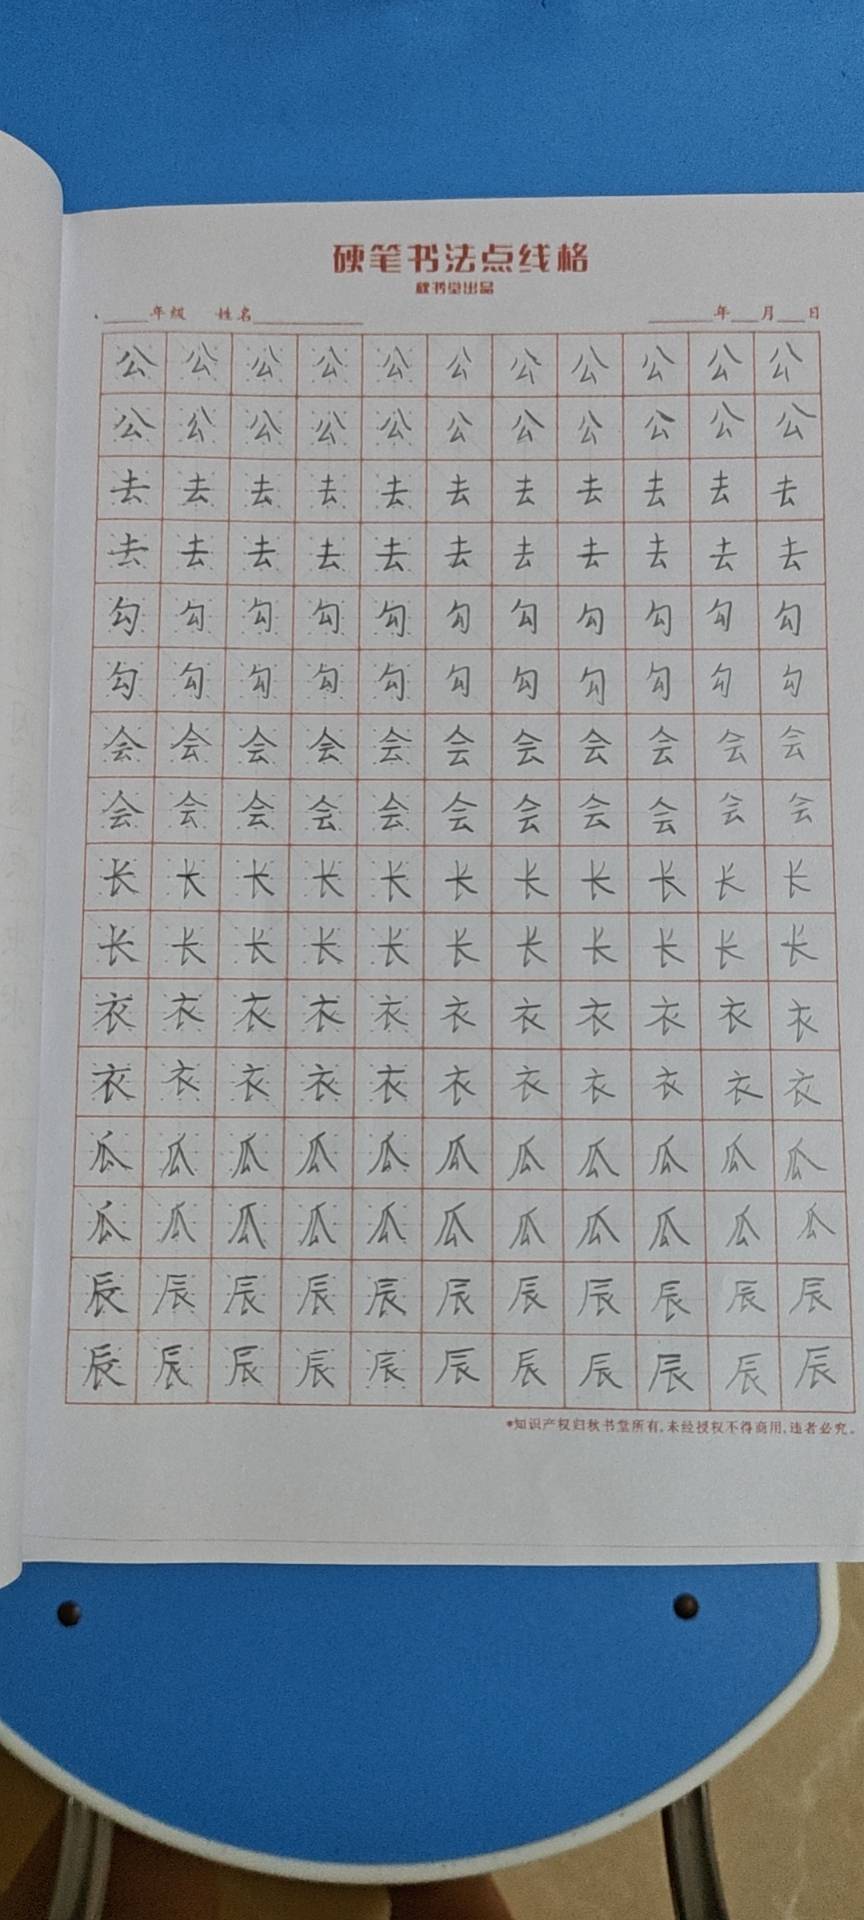 硬笔书法点线格
秋书堂出品
年级 姓名 年 月 日
公公公公公公公公公公公
公公公公公公公公公公公
去去去去去去去去去去去
去去去去去去去去去去去
勾勾勾勾勾勾勾勾勾勾勾
勾勾勾勾勾勾勾勾勾勾勾
会会会会会会会会会会会
会会会会会会会会会会会
长长长长长长长长长长长
长长长长长长长长长长长
衣衣衣衣衣衣衣衣衣衣衣
衣衣衣衣衣衣衣衣衣衣衣
瓜瓜瓜瓜瓜瓜瓜瓜瓜瓜瓜
瓜瓜瓜瓜瓜瓜瓜瓜瓜瓜瓜
辰辰辰辰辰辰辰辰辰辰辰
辰辰辰辰辰辰辰辰辰辰辰
*知识产权归秋书堂所有,未经授权不得商用,违者必究。